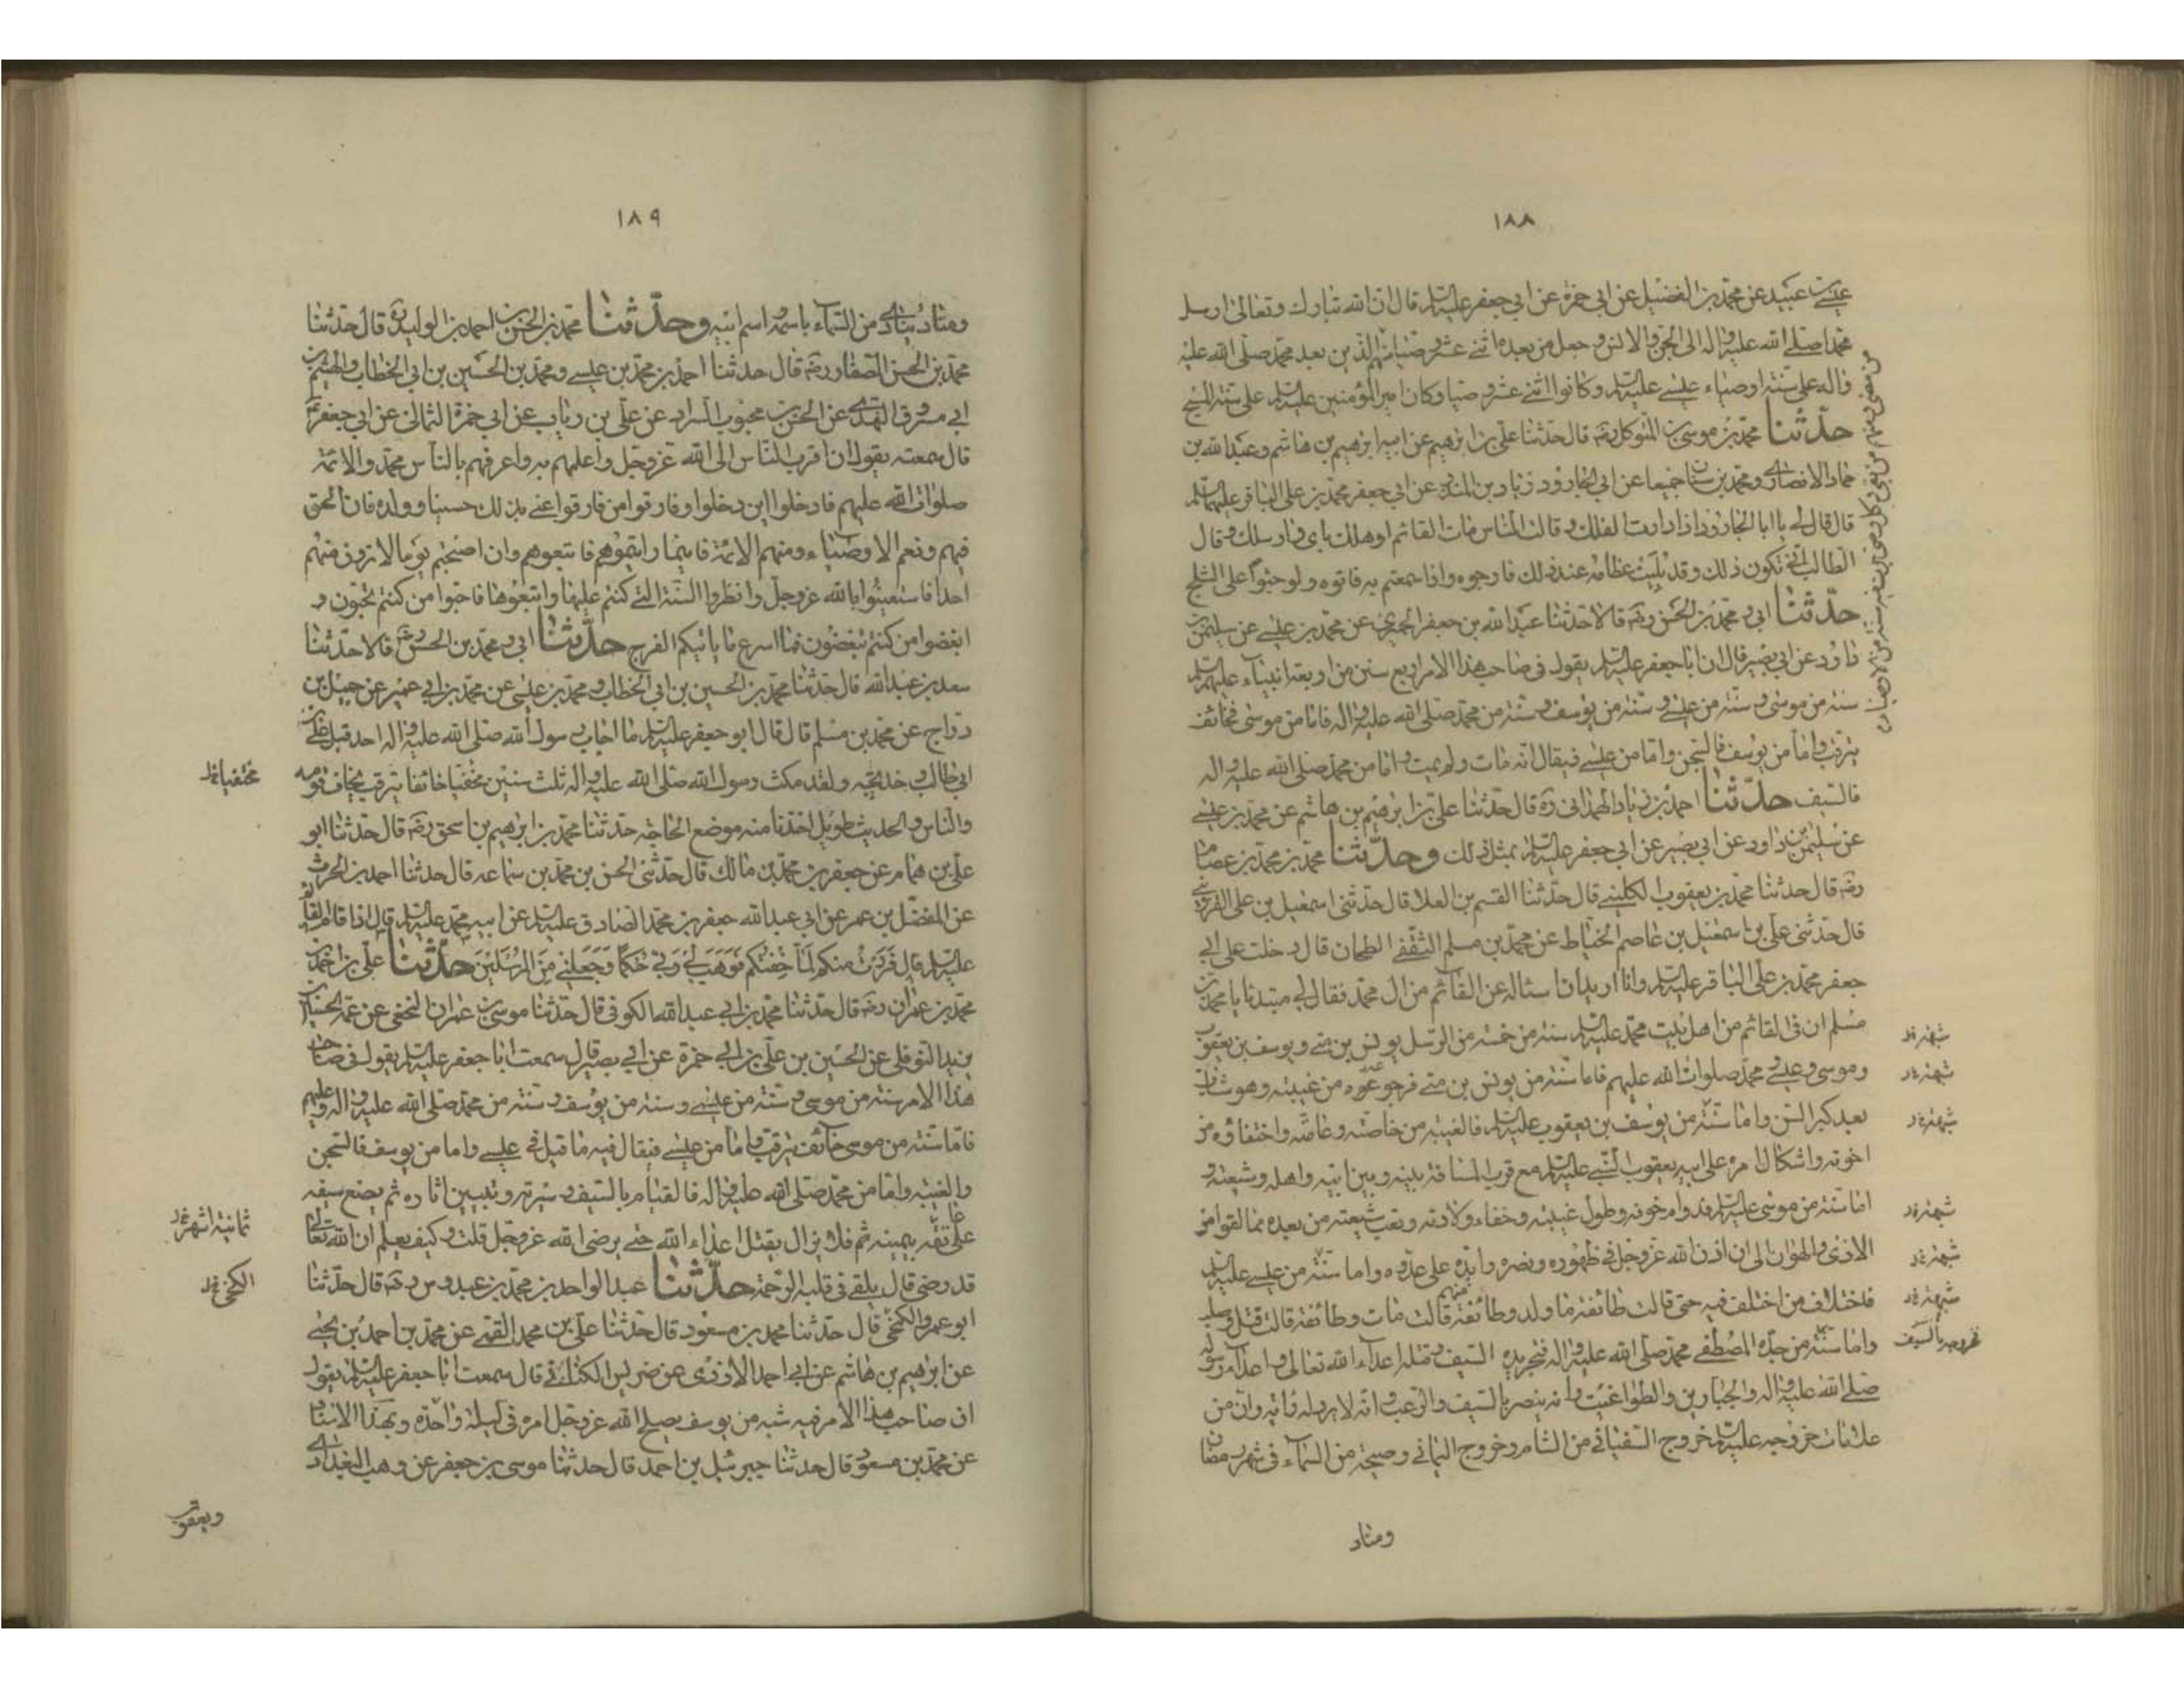 ١٨٨
عيسى بن عبيد عن محمد بن الفضيل عن ابي حمزة عن ابي جعفر عليه السلم قال ان الله تبارك وتعالى ارسل
محمدا صلى الله عليه واله الى الجن والانس وجعل من بعده اثنى عشر وصيا منهم الذين بعد محمد صلى الله عليه
واله على سنة اوصياء عيسى عليه السلم وكانوا اثنى عشر وصيا وكان امير المؤمنين عليه السلم على سنة المسيح
حدثنا محمد بن موسى بن المتوكل رضه قال حدثنا علي بن ابرهيم عن ابيه ابرهيم بن هاشم وعبد الله بن
حماد الانصارى ومحمد بن سنان جميعا عن ابي الجارود زياد بن المنذر عن ابي جعفر محمد بن علي الباقر عليهما السلم
قال قال لي يا ابا الجارود اذا دارت الفلك وقالت الناس مات القائم او هلك باي واد سلك وقال
الطالب انى تكون ذلك وقد بليت عظامه عند ذلك فارجوه واذا سمعتم به فاتوه ولو حبوا على الثلج
حدثنا ابى ومحمد بن الحسن رضه قالا حدثنا عبد الله بن جعفر الحميري عن محمد بن عيسى عن سليمن بن
داود عن ابي بصير قال ان ابا جعفر عليه السلم يقول في صاحب هذا الامر اربع سنن من اربعة انبياء عليهم السلم
سنة من موسى وسنة من عيسى وسنة من يوسف وسنة من محمد صلى الله عليه واله فاما من موسى فخائف
يترقب واما من يوسف فالسجن واما من عيسى فيقال انه مات ولم يمت واما من محمد صلى الله عليه واله
فالسيف حدثنا احمد بن زياد الهمداني ره قال حدثنا علي بن ابرهيم بن هاشم عن محمد بن عيسى
عن سليمن بن داود عن ابي بصير عن ابي جعفر عليه السلم بمثل ذلك وحدثنا محمد بن محمد بن عصام
رضه قال حدثنا محمد بن يعقوب الكليني قال حدثنا القسم بن العلا قال حدثنى اسمعيل بن على القزويني
قال حدثنى على بن اسمعيل بن عاصم الخياط عن محمد بن مسلم الثقفي الطحان قال دخلت على ابي
جعفر محمد بن علي الباقر عليه السلم وانا اريد ان اساله عن القائم من ال محمد فقال لي مبتدئا يا محمد بن
مسلم ان في القائم من اهل بيت محمد عليه السلم سنة من خمسة من الرسل يونس بن متى ويوسف بن يعقوب
وموسى وعيسى ومحمد صلوات الله عليهم فاما سنة من يونس بن متى فرجوعه من غيبته وهو شاب
بعد كبر السن واما سنة من يوسف بن يعقوب عليه السلم فالغيبة من خاصته وعامته واختفاؤه من
اخوته واشكال امره على ابيه يعقوب النبي عليه السلم مع قرب المسافة بينه وبين ابيه واهله وشيعته و
اما سنة من موسى عليه السلم فدوام خوفه وطول غيبته وخفاء ولادته وتعب شيعته من بعده مما لقوا من
الاذى والهوان الى ان اذن الله عز وجل في ظهوره ونصره وايده على عدوه واما سنة من عيسى عليه السلم
فاختلاف من اختلف فيه حتى قالت طائفة منهم ما ولد وطائفة قالت مات وطائفة قالت قتل وصلب
واما سنة من جده المصطفى محمد صلى الله عليه واله فتجريده السيف وقتله اعداء الله تعالى واعداء رسوله
صلى الله عليه واله والجبارين والطواغيت وانه ينصر بالسيف والرعب وانه لا يرد له راية وان من
علامات خروجه عليه السلم خروج السفياني من الشام وخروج اليماني وصيحة من السماء في شهر رمضان
ومناد
١٨٩
ومناد ينادى من السماء باسمه واسم ابيه وحدثنا محمد بن الحسن بن احمد بن الوليد ره قال حدثنا
محمد بن الحسن الصفار رضه قال حدثنا احمد بن محمد بن عيسى ومحمد بن الحسين بن ابي الخطاب والهيثم بن
ابي مسروق النهدى عن الحسن بن محبوب السراد عن علي بن رياب عن ابي حمزة الثمالى عن ابي جعفر
قال سمعته يقول ان اقرب الناس الى الله عز وجل واعلمهم به واعرفهم بالناس محمد والائمة
صلوات الله عليهم فادخلوا اين دخلوا وفارقوا من فارقوا عنى بذلك حسينا وولده فان الحق
فيهم ونعم الاوصياء ومنهم الائمة فاينما رايتموهم فاتبعوهم وان اصبحتم يوما لا ترون منهم
احدا فاستعينوا بالله عز وجل وانظروا السنة التى كنتم عليها واتبعوها فاحبوا من كنتم تحبون و
ابغضوا من كنتم تبغضون فما اسرع ما ياتيكم الفرج حدثنا ابي ومحمد بن الحسن قالا حدثنا
سعد بن عبد الله قال حدثنا محمد بن الحسين بن ابي الخطاب ومحمد بن عيسى عن محمد بن ابي عمير عن جميل بن
دراج عن محمد بن مسلم قال قال ابو جعفر عليه السلم ما اجاب رسول الله صلى الله عليه واله احد قبل علي بن
ابي طالب وخديجة ولقد مكث رسول الله صلى الله عليه واله ثلث سنين مختفيا خائفا يترقب يخاف قومه
والناس والحديث طويل اخذنا منه موضع الحاجة حدثنا محمد بن ابرهيم بن اسحق رضه قال حدثنا ابو
علي بن همام عن جعفر بن محمد بن مالك قال حدثنى الحسن بن محمد بن سماعة قال حدثنا احمد بن الحرث
عن المفضل بن عمر عن ابي عبد الله جعفر بن محمد الصادق عليه السلم عن ابيه محمد عليه السلم قال اذا قام القائم
عليه السلم قال ففررت منكم لما خفتكم فوهب لي ربي حكما وجعلني من المرسلين حدثنا علي بن احمد بن
محمد بن عمران رضه قال حدثنا محمد بن ابي عبد الله الكوفي قال حدثنا موسى بن عمران النخعي عن عمه الحسين بن
يزيد النوفلي عن الحسين بن علي بن ابي حمزة عن ابي بصير قال سمعت ابا جعفر عليه السلم يقول في صاحب
هذا الامر سنة من موسى وسنة من عيسى وسنة من يوسف وسنة من محمد صلى الله عليه واله وعليهم
فاما سنة من موسى خائف يترقب واما من عيسى فيقال فيه ما قيل في عيسى واما من يوسف فالسجن
والغيبة واما من محمد صلى الله عليه واله فالقيام بالسيف وسيرته وتبيين اثاره ثم يضع سيفه
على عاتقه بيمينه ثم فلا يزال يقتل اعداء الله حتى يرضى الله عز وجل قلت وكيف يعلم ان الله تعالى
قد رضى قال يلقى في قلبه الرحمة حدثنا عبد الواحد بن محمد بن عبدوس رضه قال حدثنا
ابو عمرو الكجي قال حدثنا محمد بن مسعود قال حدثنا علي بن محمد القمى عن محمد بن احمد بن يحيى
عن ابرهيم بن هاشم عن ابي احمد الازدى عن ضريس الكناسي قال سمعت ابا جعفر عليه السلم يقول
ان صاحب هذا الامر فيه شبه من يوسف يصلح الله عز وجل امره في ليلة واحدة وبهذا الاسناد
عن محمد بن مسعود قال حدثنا جبرئيل بن احمد قال حدثنا موسى بن جعفر عن وهب البغدادى
مختفيا
ثمانية اشهر
ويعقوب